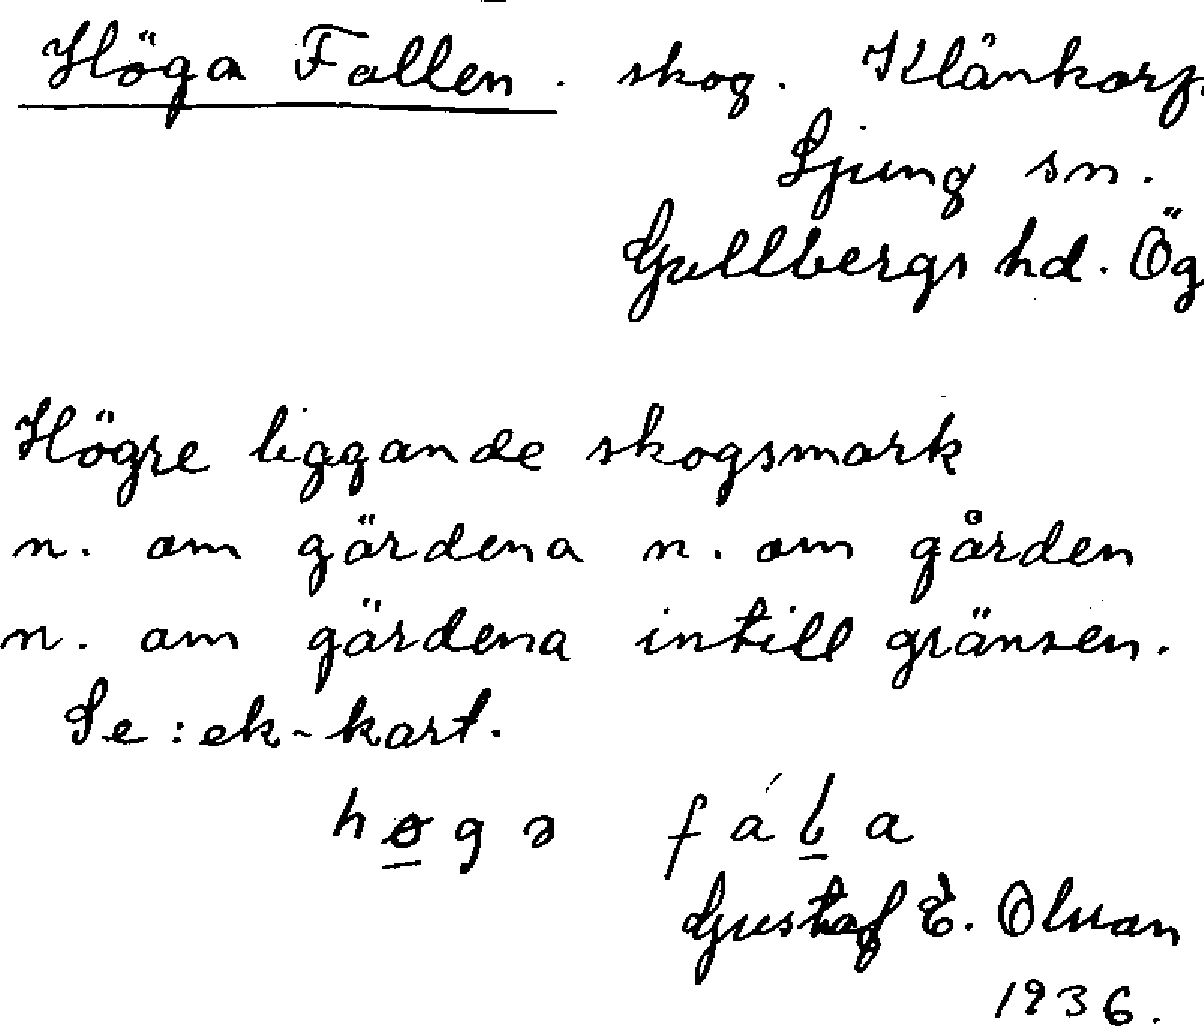 Höga Fallen. skog. Klånkorp.
Ljung sn.
Gullbergs hd. Ög
Högre liggande skogsmark
n. om gärdena n. om gården
n. om gärdena intill gränsen.
Se: ek-kart.
Gustaf E. Olsson
1936.